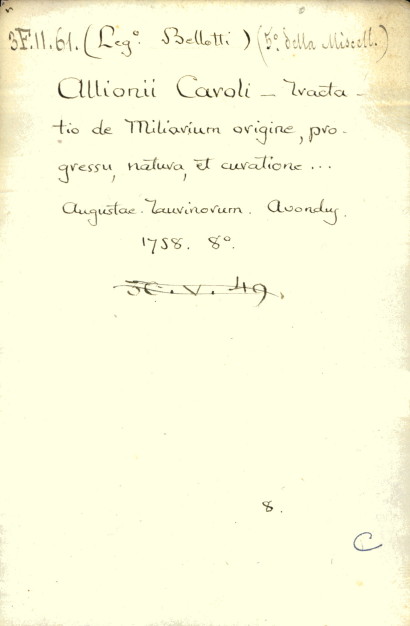 3F.11.61. (Leg°. Bellotti) (5°. della Miscell.)
Allionii Caroli – Tracta-
tio de Miliarium origine, pro-
gressu, natura, et curatione...
Augustae. Taurinorum. Avondus.
1758. 8°.
V. 49.
8.
C